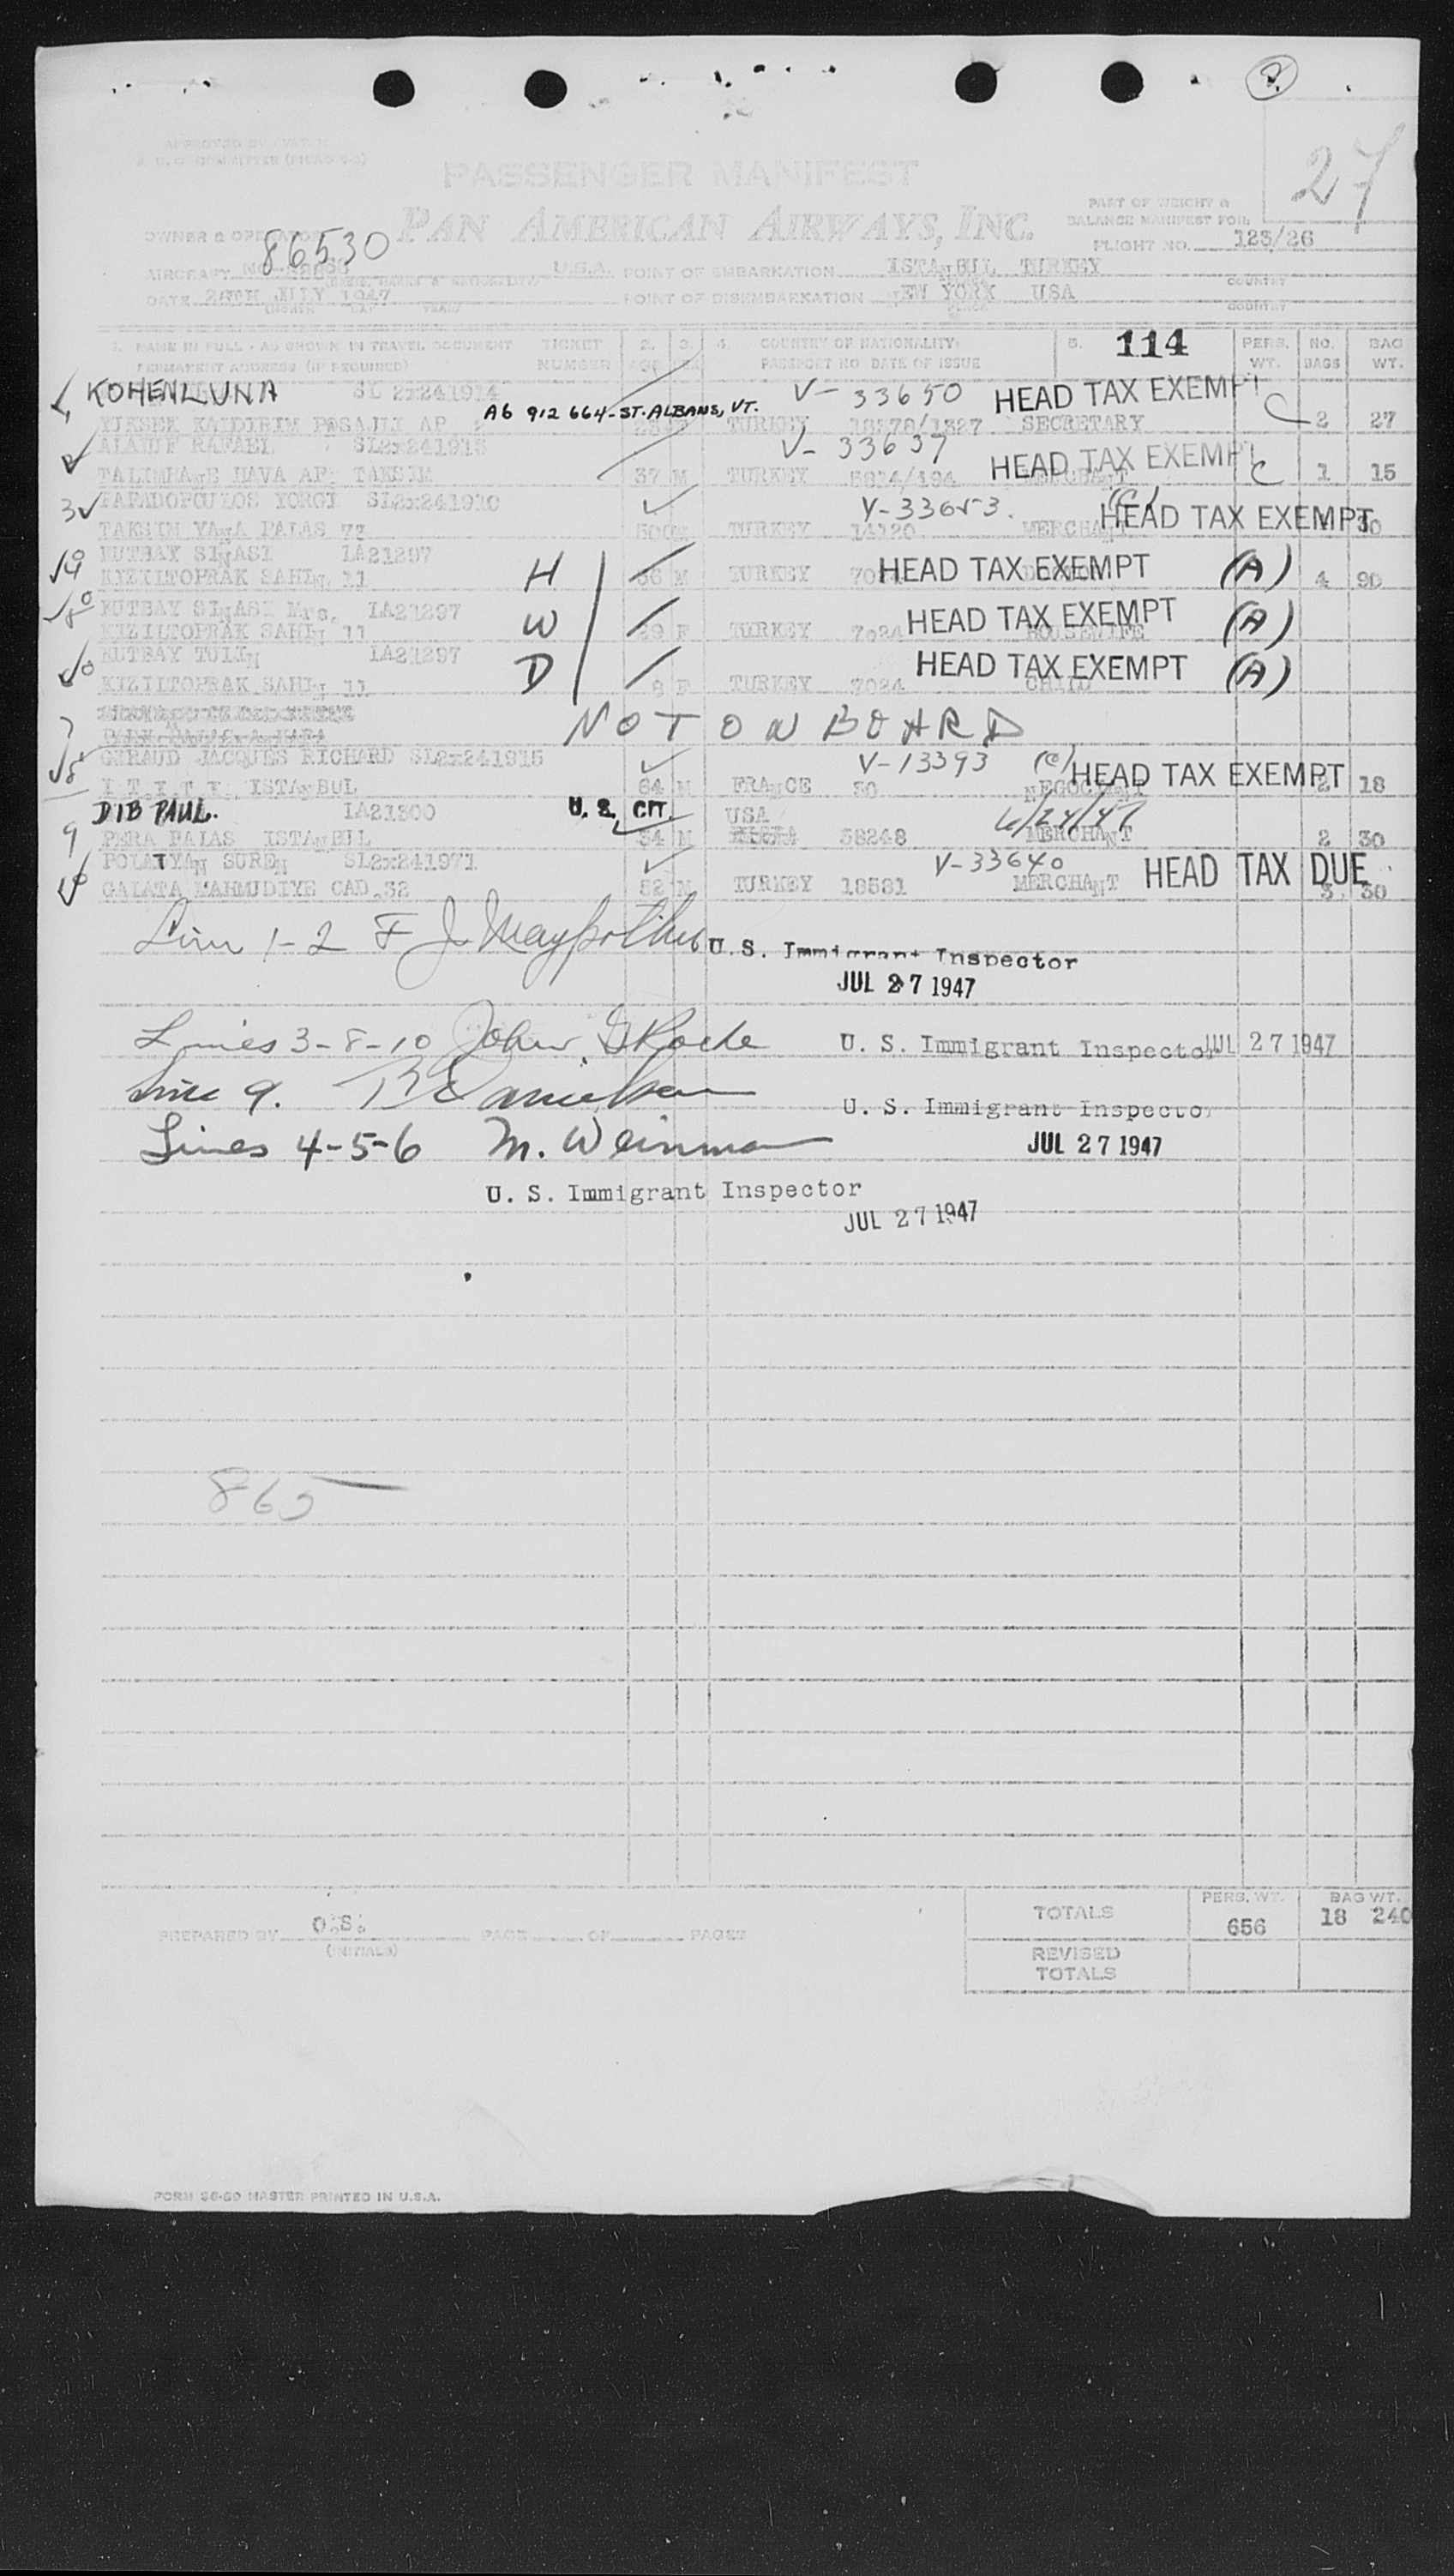 2.
27
PASSENGER MANIFEST
PAN AMERICAN AIRWAYS, INC.
PART OF WEIGHT &
BALANCE MANIFEST FOR:
FLIGHT NO. 123/26
OWNER & OPERATOR
86530
AIRCRAFT U.S.A. POINT OF EMBARKATION ISTANBUL TURKEY
COUNTRY
DATE 26TH JULY 1947 POINT OF DISEMBARKATION NEW YORK USA
COUNTRY
1. NAME IN FULL - AS SHOWN IN TRAVEL DOCUMENT TICKET 2. 3. 4. COUNTRY OF NATIONALITY: 5. 114 PERS. NO. BAG
PERMANENT ADDRESS (IF REQUIRED) NUMBER AGE SEX PASSPORT NO DATE OF ISSUE WT. BAGS WT.
KOHEN LUNA SL 2x241914 V-33650 HEAD TAX EXEMPT
A6 912 664-ST. ALBANS, VT.
YUKSEK KALDIRIM PASAJLI AP TURKEY 18378/1327 SECRETARY C 2 27
RAFAEL V-33637 HEAD TAX EXEMPT
HAVA AP TAKSIM 37 M TURKEY 5814/194 C 1 15
3 PAPADOPOULOS YORGI SL2x241910 V-33653. (C) HEAD TAX EXEMPT
TAKSIM PALAS TURKEY 14320 MERCHANT 30
4 KUTBAY SINASI IA21297 H HEAD TAX EXEMPT (A)
KIZILTOPRAK SAHIN 11 36 M TURKEY 7024 4 90
KUTBAY SINASI Mrs. IA21297 W HEAD TAX EXEMPT (A)
KIZILTOPRAK SAHIN 11 29 F TURKEY 7024 HOUSEWIFE
KUTBAY TULIN IA21297 D HEAD TAX EXEMPT (A)
KIZILTOPRAK SAHIN 11 8 F TURKEY 7024 CHILD
7 NOT ON BOARD
8 GIRAUD JACQUES RICHARD SL2x241915 V-13393 (C) HEAD TAX EXEMPT
ISTANBUL 64 M FRANCE 30 NEGOCIANT 2 18
DIB PAUL. IA21300 U.S. CIT. USA 6/24/47
9 PERA PALAS ISTANBUL 34 M 58248 MERCHANT 2 30
POLATYAN SUREN SL2x241971 V-33640 HEAD TAX DUE
GALATA MAHMUDIYE CAD.32 52 M TURKEY 18581 MERCHANT 3 30
Line 1-2 F J U.S. Immigrant Inspector
JUL 27 1947
Lines 3-8-10 John U. S. Immigrant Inspector JUL 27 1947
Line 9. U. S. Immigrant Inspector
Lines 4-5-6 M. Weinman JUL 27 1947
U. S. Immigrant Inspector
JUL 27 1947
865
TOTALS PERS. WT. 656 BAG WT. 18 240
PREPARED BY O.S. PAGE OF PAGES
(INITIALS)
REVISED
TOTALS
FORM 36-60 MASTER PRINTED IN U.S.A.